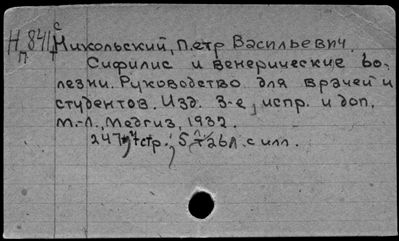 с
Н 841
п
Никольский, Петр Васильевич.
Сифилис и венерические бо-
лезни. Руководство для врачей и
студентов. Изд. 3-е, испр. и доп.
М.-Л., Медгиз, 1932.
247 стр.; 5 26 л. с илл.